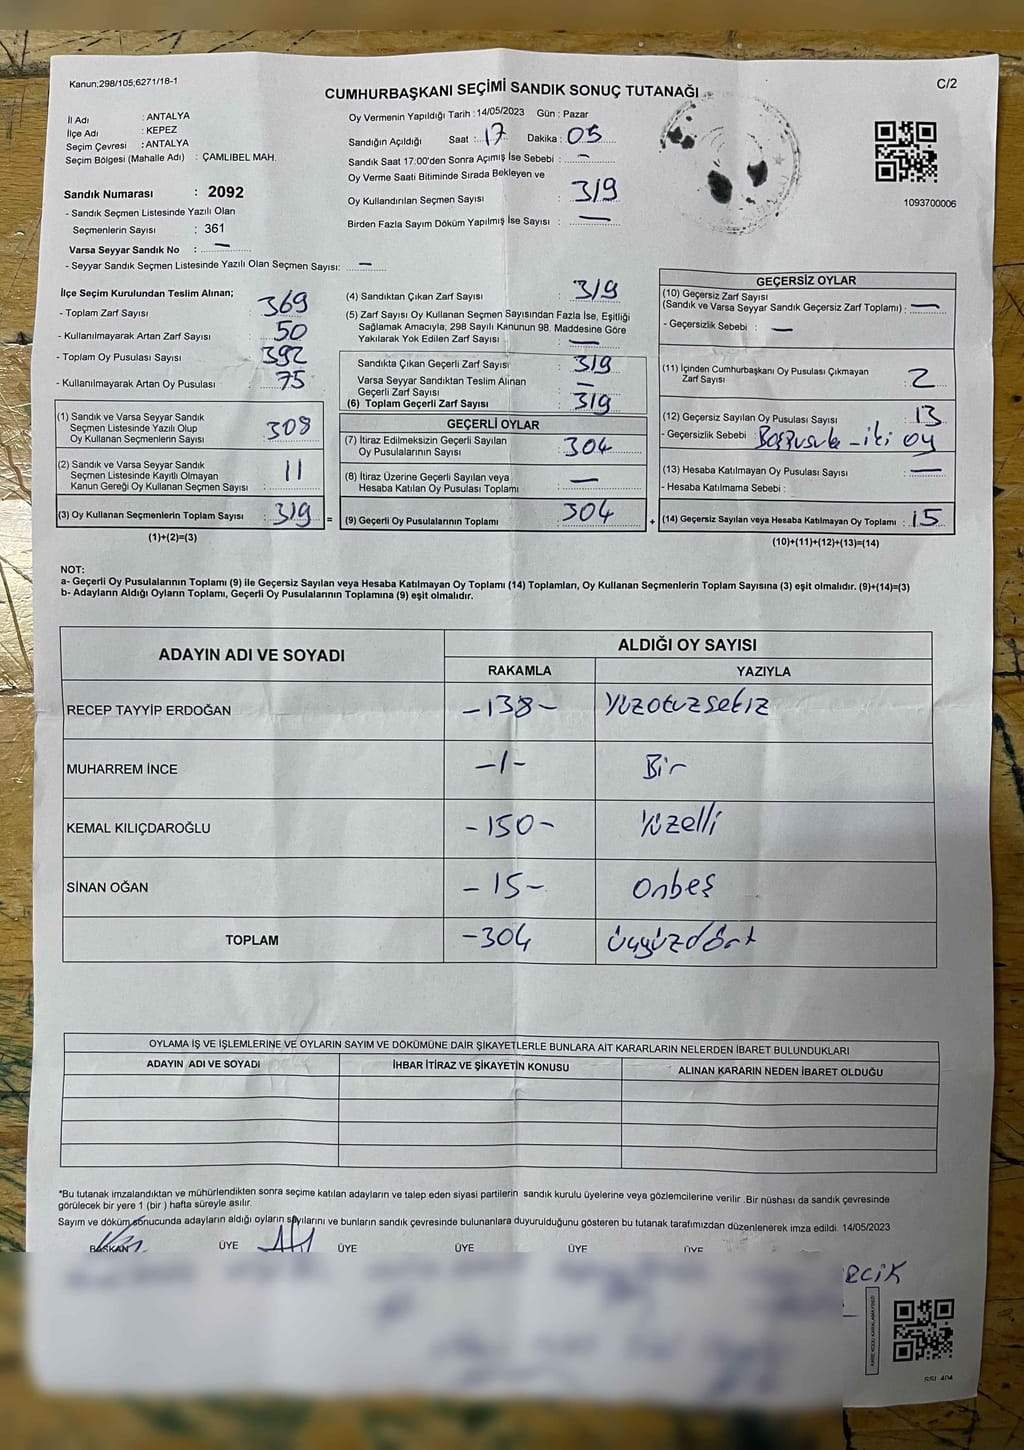 Kanun;298/105;6271/18-1
C/2
CUMHURBAŞKANI SEÇİMİ SANDIK SONUÇ TUTANAĞI
İl Adı : ANTALYA
İlçe Adı : KEPEZ
Seçim Çevresi : ANTALYA
Seçim Bölgesi (Mahalle Adı) : ÇAMLIBEL MAH.
Sandık Numarası : 2092
- Sandık Seçmen Listesinde Yazılı Olan
Seçmenlerin Sayısı : 361
Varsa Seyyar Sandık No : —
- Seyyar Sandık Seçmen Listesinde Yazılı Olan Seçmen Sayısı: —
Oy Vermenin Yapıldığı Tarih : 14/05/2023 Gün : Pazar
Sandığın Açıldığı Saat : 17 Dakika : 05
Sandık Saat 17:00'den Sonra Açımış İse Sebebi : —
Oy Verme Saati Bitiminde Sırada Bekleyen ve
Oy Kullandırılan Seçmen Sayısı : 319
Birden Fazla Sayım Döküm Yapılmış İse Sayısı : —
1093700006
İlçe Seçim Kurulundan Teslim Alınan;
- Toplam Zarf Sayısı : 369
- Kullanılmayarak Artan Zarf Sayısı : 50
- Toplam Oy Pusulası Sayısı : 392
- Kullanılmayarak Artan Oy Pusulası : 75
(1) Sandık ve Varsa Seyyar Sandık
Seçmen Listesinde Yazılı Olup
Oy Kullanan Seçmenlerin Sayısı : 308
(2) Sandık ve Varsa Seyyar Sandık
Seçmen Listesinde Kayıtlı Olmayan
Kanun Gereği Oy Kullanan Seçmen Sayısı : 11
(3) Oy Kullanan Seçmenlerin Toplam Sayısı : 319 =
(1)+(2)=(3)
(4) Sandıktan Çıkan Zarf Sayısı : 319
(5) Zarf Sayısı Oy Kullanan Seçmen Sayısından Fazla İse, Eşitliği
Sağlamak Amacıyla; 298 Sayılı Kanunun 98. Maddesine Göre
Yakılarak Yok Edilen Zarf Sayısı : —
Sandıkta Çıkan Geçerli Zarf Sayısı : 319
Varsa Seyyar Sandıktan Teslim Alınan
Geçerli Zarf Sayısı : —
(6) Toplam Geçerli Zarf Sayısı : 319
GEÇERLİ OYLAR
(7) İtiraz Edilmeksizin Geçerli Sayılan
Oy Pusulalarının Sayısı : 304
(8) İtiraz Üzerine Geçerli Sayılan veya
Hesaba Katılan Oy Pusulası Toplamı : —
(9) Geçerli Oy Pusulalarının Toplamı : 304 +
GEÇERSİZ OYLAR
(10) Geçersiz Zarf Sayısı
(Sandık ve Varsa Seyyar Sandık Geçersiz Zarf Toplamı) : —
- Geçersizlik Sebebi : —
(11) İçinden Cumhurbaşkanı Oy Pusulası Çıkmayan
Zarf Sayısı : 2
(12) Geçersiz Sayılan Oy Pusulası Sayısı : 13
- Geçersizlik Sebebi : Boşpusula - iki oy
(13) Hesaba Katılmayan Oy Pusulası Sayısı : —
- Hesaba Katılmama Sebebi :
(14) Geçersiz Sayılan veya Hesaba Katılmayan Oy Toplamı : 15
(10)+(11)+(12)+(13)=(14)
NOT:
a- Geçerli Oy Pusulalarının Toplamı (9) ile Geçersiz Sayılan veya Hesaba Katılmayan Oy Toplamı (14) Toplamları, Oy Kullanan Seçmenlerin Toplam Sayısına (3) eşit olmalıdır. (9)+(14)=(3)
b- Adayların Aldığı Oyların Toplamı, Geçerli Oy Pusulalarının Toplamına (9) eşit olmalıdır.
ADAYIN ADI VE SOYADI
ALDIĞI OY SAYISI
RAKAMLA YAZIYLA
RECEP TAYYİP ERDOĞAN -138- Yüzotuzsekiz
MUHARREM İNCE -1- Bir
KEMAL KILIÇDAROĞLU -150- Yüzelli
SİNAN OĞAN -15- Onbeş
TOPLAM -304 üçyüzdört
OYLAMA İŞ VE İŞLEMLERİNE VE OYLARIN SAYIM VE DÖKÜMÜNE DAİR ŞİKAYETLERLE BUNLARA AİT KARARLARIN NELERDEN İBARET BULUNDUKLARI
ADAYIN ADI VE SOYADI İHBAR İTİRAZ VE ŞİKAYETİN KONUSU ALINAN KARARIN NEDEN İBARET OLDUĞU
*Bu tutanak imzalandıktan ve mühürlendikten sonra seçime katılan adayların ve talep eden siyasi partilerin sandık kurulu üyelerine veya gözlemcilerine verilir .Bir nüshası da sandık çevresinde
görülecek bir yere 1 (bir ) hafta süreyle asılır.
Sayım ve döküm sonucunda adayların aldığı oyların sayılarını ve bunların sandık çevresinde bulunanlara duyurulduğunu gösteren bu tutanak tarafımızdan düzenlenerek imza edildi. 14/05/2023
BAŞKAN ÜYE ÜYE ÜYE ÜYE ÜYE